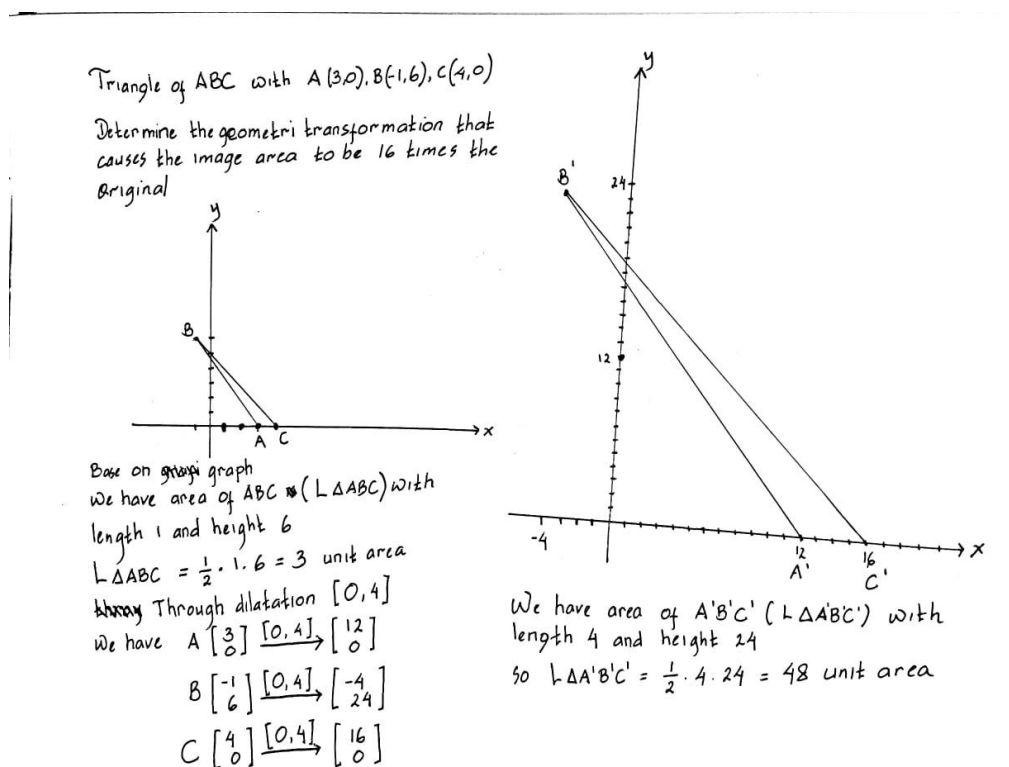 Triangle of ABC with A(3,0), B(-1,6), C(4,0)
Determine the geometri transformation that
causes the image area to be 16 times the
Original
y
B
A C
x
Base on graph
We have area of ABC (L△ABC) with
length 1 and height 6
L△ABC = 1/2 . 1. 6 = 3 unit area
Through dilatation [0,4]
We have A [3 0] [0,4]→ [12 0]
B [-1 6] [0,4]→ [-4 24]
C [4 0] [0,4]→ [16 0]
y
B' 24
12
-4 12 16 x
A' C'
We have area of A'B'C' (L△A'B'C') with
length 4 and height 24
So L△A'B'C' = 1/2 . 4. 24 = 48 unit area